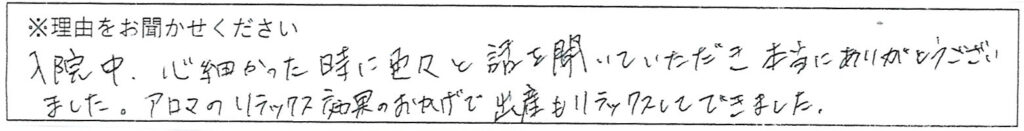 ※理由をお聞かせください
入院中、心細かった時に色々と話を聞いていただき本当にありがとうござい
ました。アロマのリラックス効果のおかげで出産もリラックスしてできました。